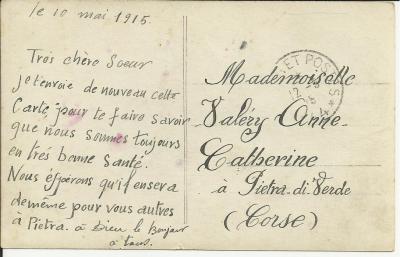 le 10 mai 1915.
Très chère Soeur
je tenvoie de nouveau cette
Carte pour te faire savoir
que nous sommes toujours
en très bonne Santé.
Nous éspérons qu'il ensera
demême pour vous autres
à Pietra. à Dieu le Bonjour
à tous.
ET POSTES
Mademoiselle
Valéry Anne-
Catherine
à Pietra-di-Verde
(Corse)